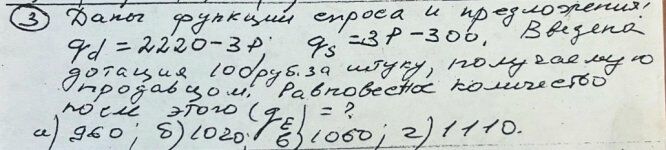 ③ Даны функции спроса и предложения:
qd = 2220-3P. qs = 3P-300. Введена
дотация 100 руб. за штуку, получаемую
продавцом. Равновесное количество
после этого (qE) = ?
а) 960; б) 1020; в) 1060; г) 1110.